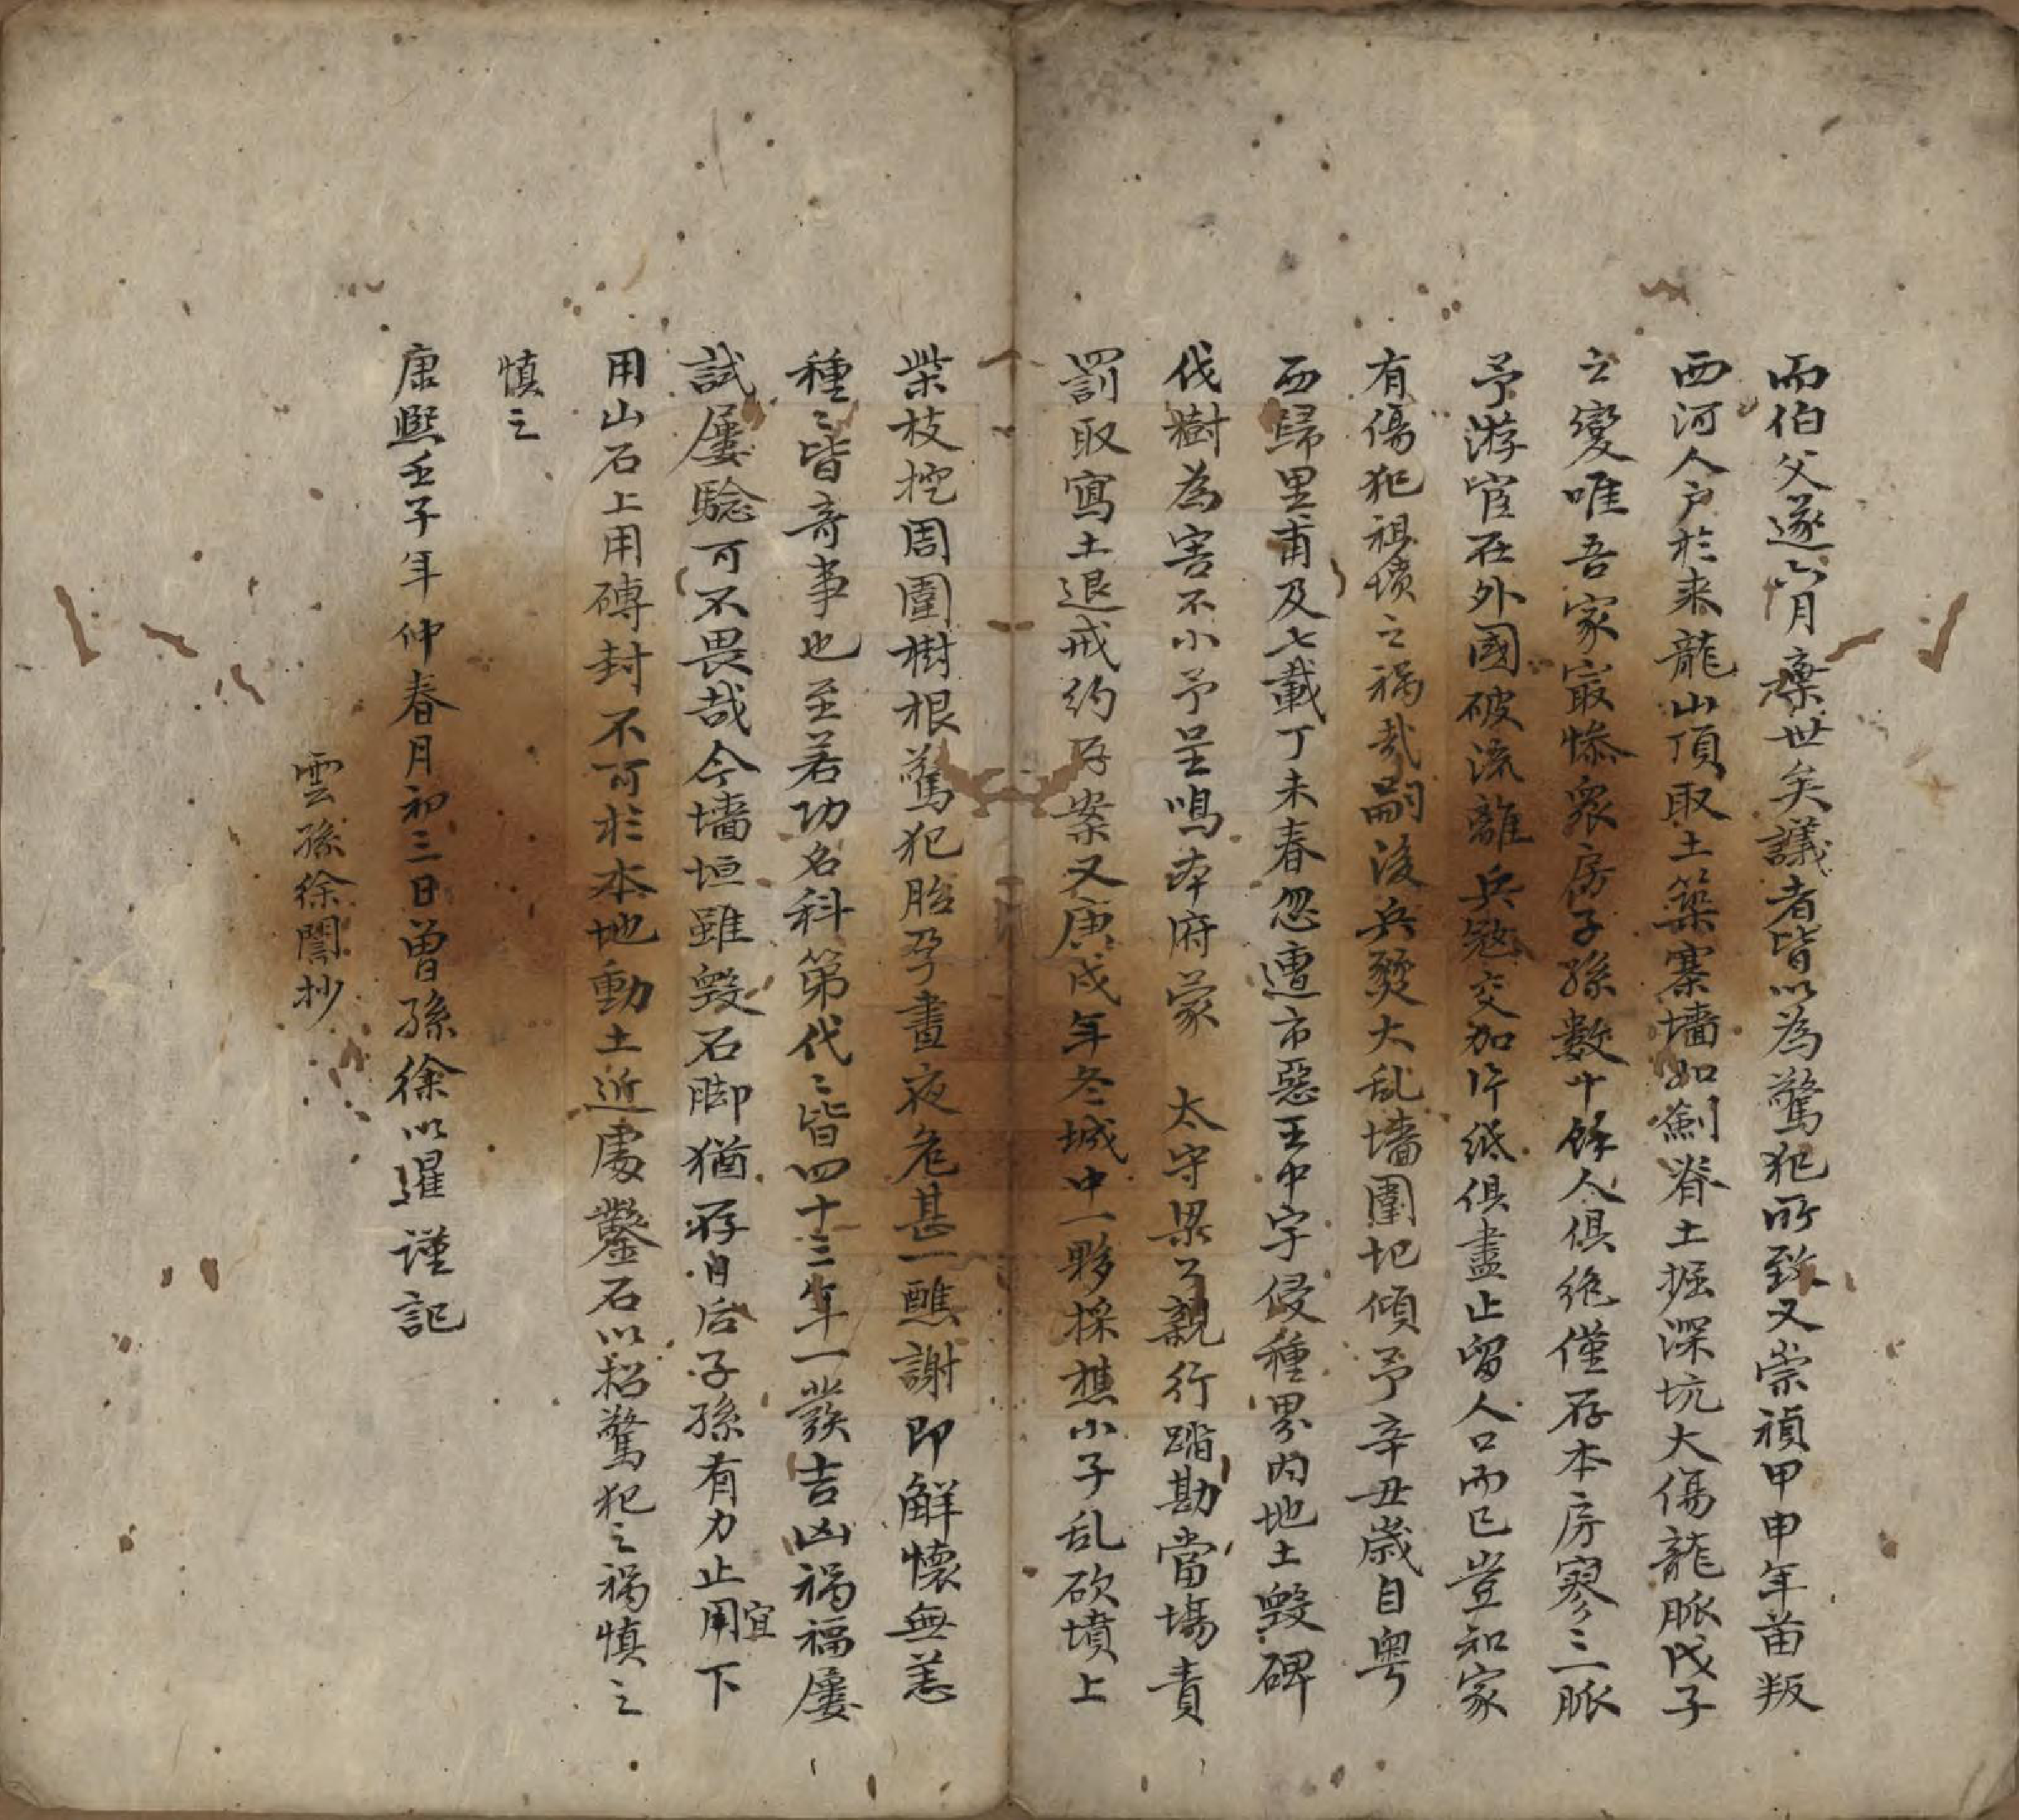 而伯父遂六月棄世矣議者皆以為驚犯所致又崇禎甲申年苗叛
西河人户於来龍山頂取土築寨墻如劍脊土掘深坑大傷龍脈戊子
之變唯吾家寂慘衆房子孫數十餘人俱絶僅存本房寥三一脈
予游宦在外國破流離兵寇交加片紙俱盡止留人口而已豈知家
有傷犯祖墳之禍哉嗣後兵燹大乱墻圍圮傾予辛丑歲自粤
西歸里甫及七載丁未春忽遭市惡王中宇侵種界内地土毁碑
伐樹為害不小予呈鳴本府蒙 太守梁公親行踏勘當場責
罰取寫土退戒約存案又庚戌年冬城中一夥採樵小子乱砍墳上
柴枝挖周圍樹根驚犯胎孕晝夜危甚一醮謝即解懷無恙
種〻皆奇事也至若功名科第代〻皆四十三年一發吉凶禍福屢
試屢驗可不畏哉今墻垣雖毁石脚猶存自后子孫有力止用宜下
用山石上用磚封不可於本地動土近處鑿石以招驚犯之禍慎之
慎之
康熙壬子年仲春月初三日曾孫徐以暹謹記
雲孫徐誾抄